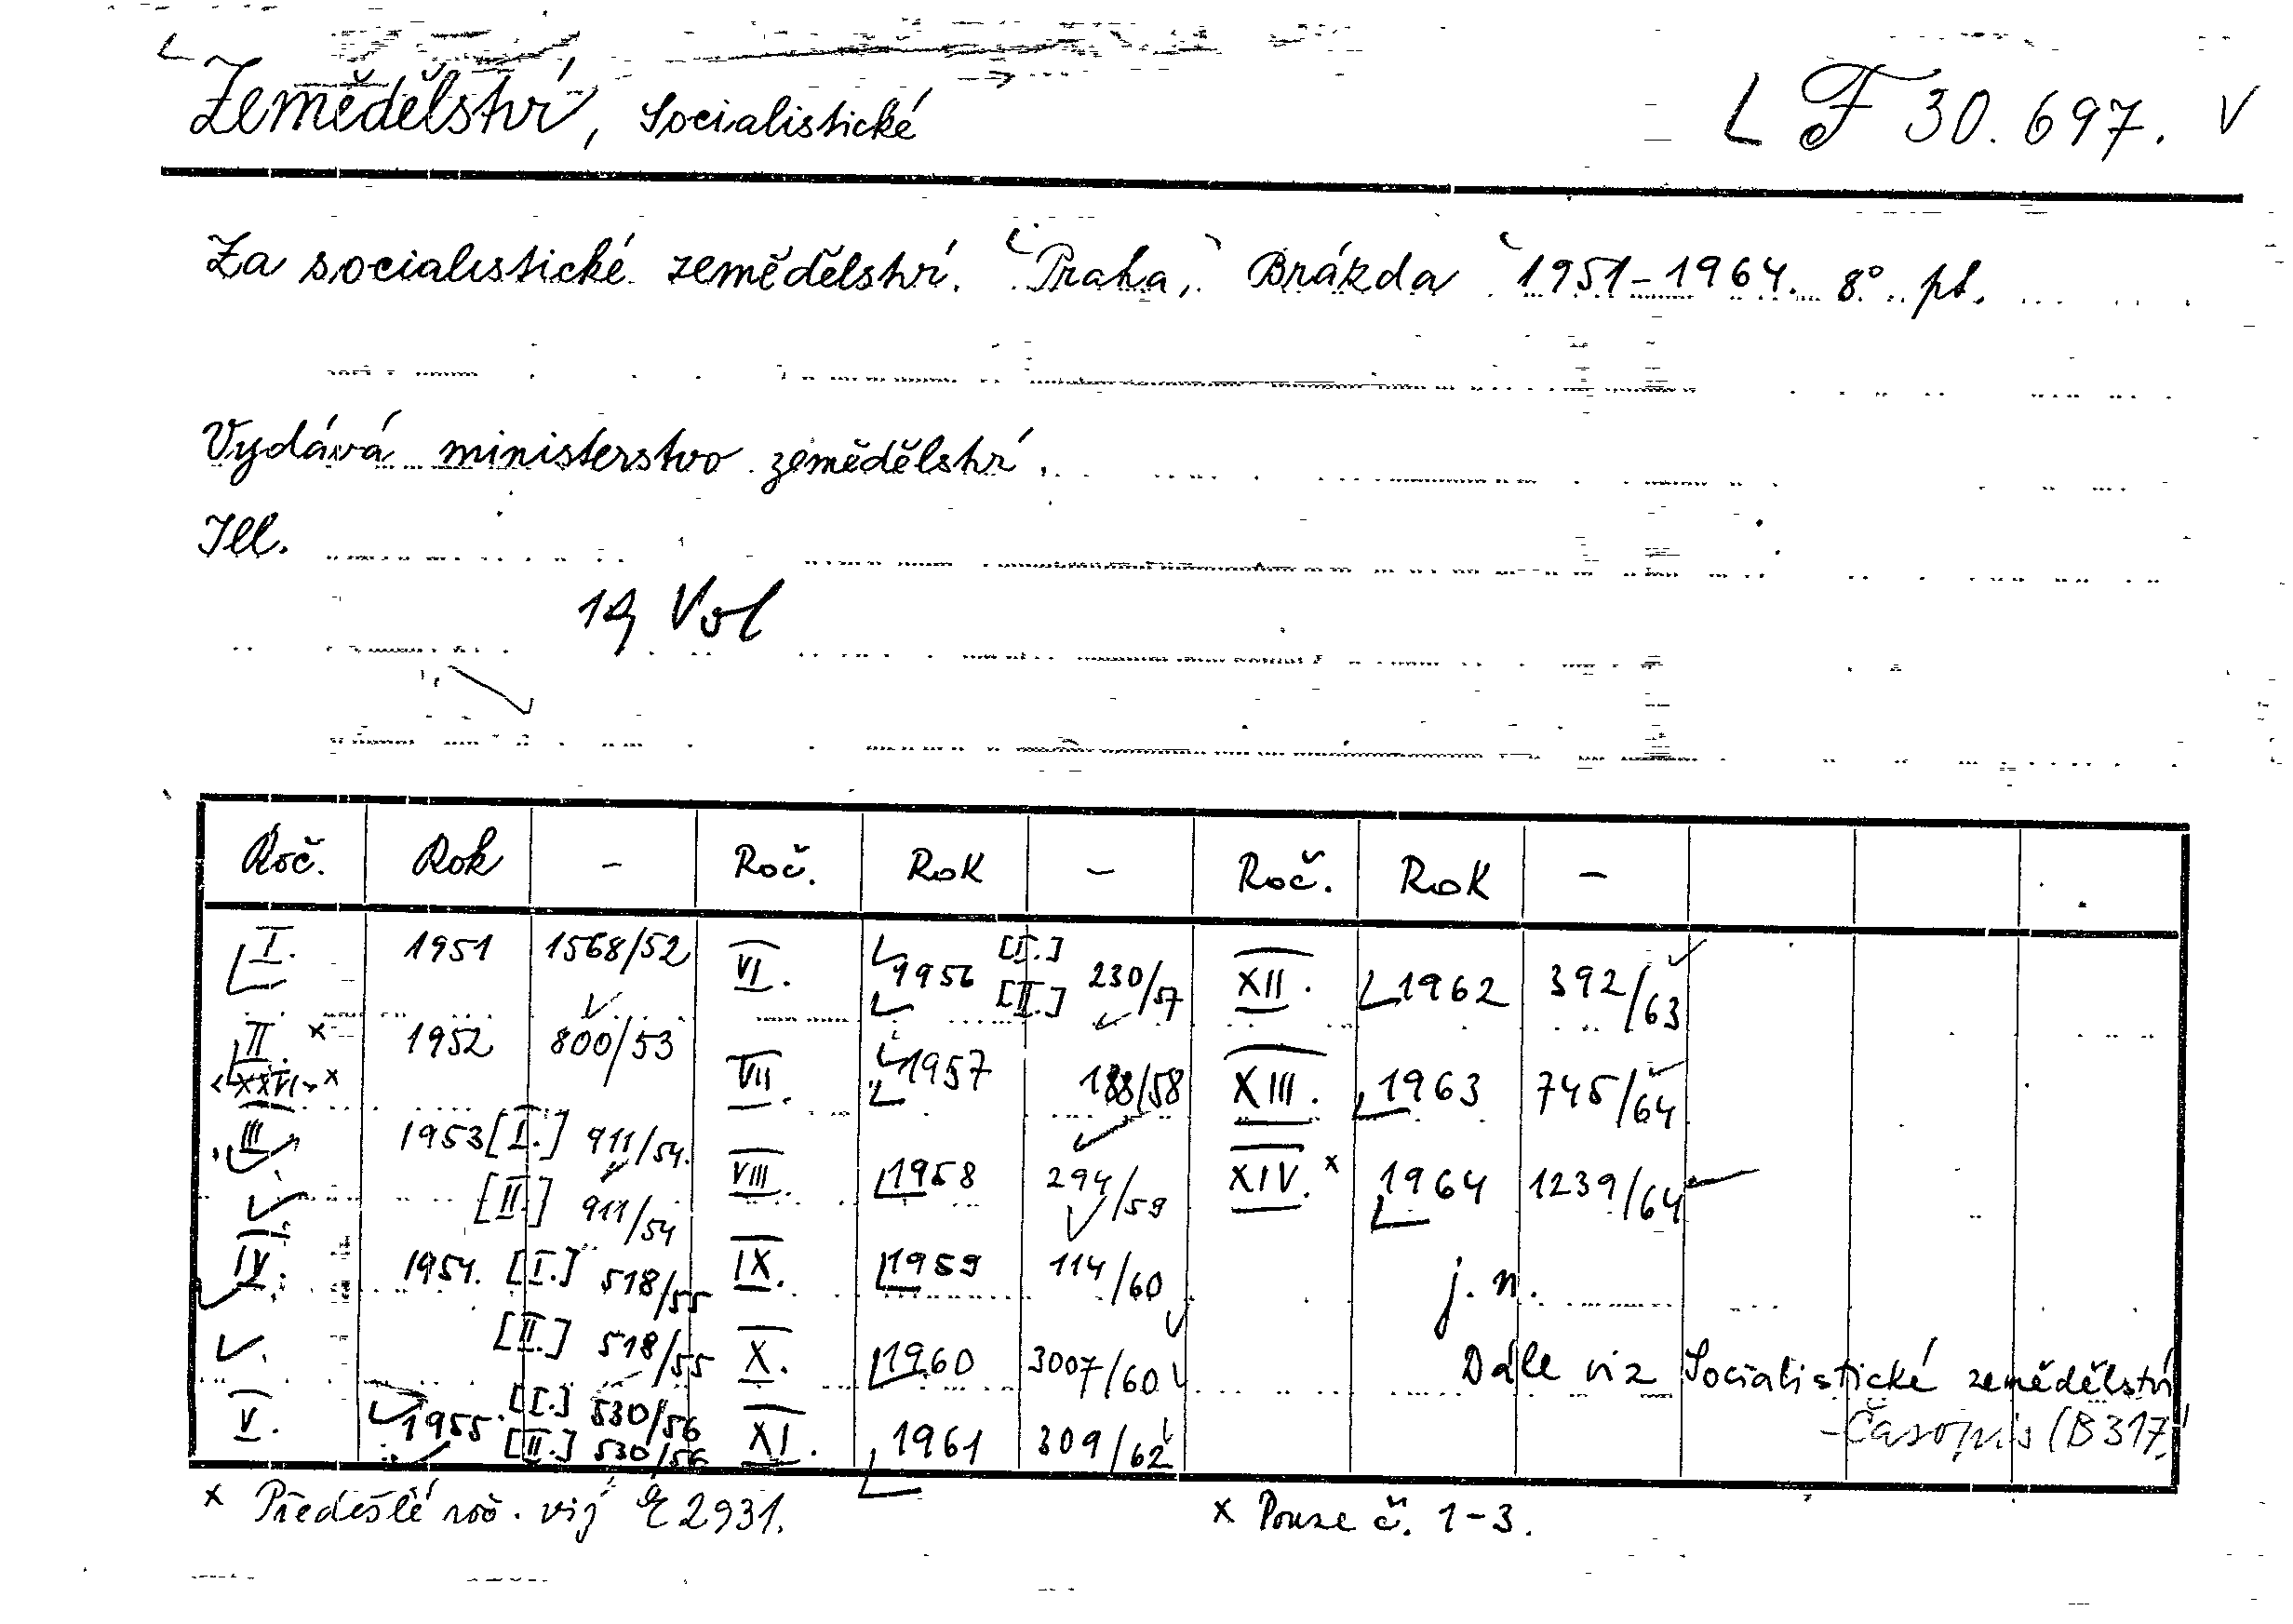 Zemědělství, Socialistické F 30.697.
Za socialistické zemědělství. Praha, Brázda 1951-1964. 8°. pt.
Vydává ministerstvo zemědělství.
Ill.
19 Vol
Roč. Rok - Roč. Rok - Roč. Rok -
I. 1951 1568/52 VI. 1956 [I.] [II.] 230/57 XII. 1962 392/63
II. x 1952 800/53 VII. 1957 188/58 XIII. 1963 745/64
<XXVI> x
III. 1953 [I.] 911/54. VIII. 1958 294/59 XIV. x 1964 1239/64
[II.] 911/54
IV. 1954. [I.] 518/55 IX. 1959 114/60 j. n.
[II.] 518/55 X. 1960 3007/60 Dále viz Socialistické zemědělství
V. 1955. [I.] 530/56 XI. 1961 309/62 - Časopis (B 317)
[II.] 530/56
x Předešlé roč. viz 2931. x Pouze č. 1-3.